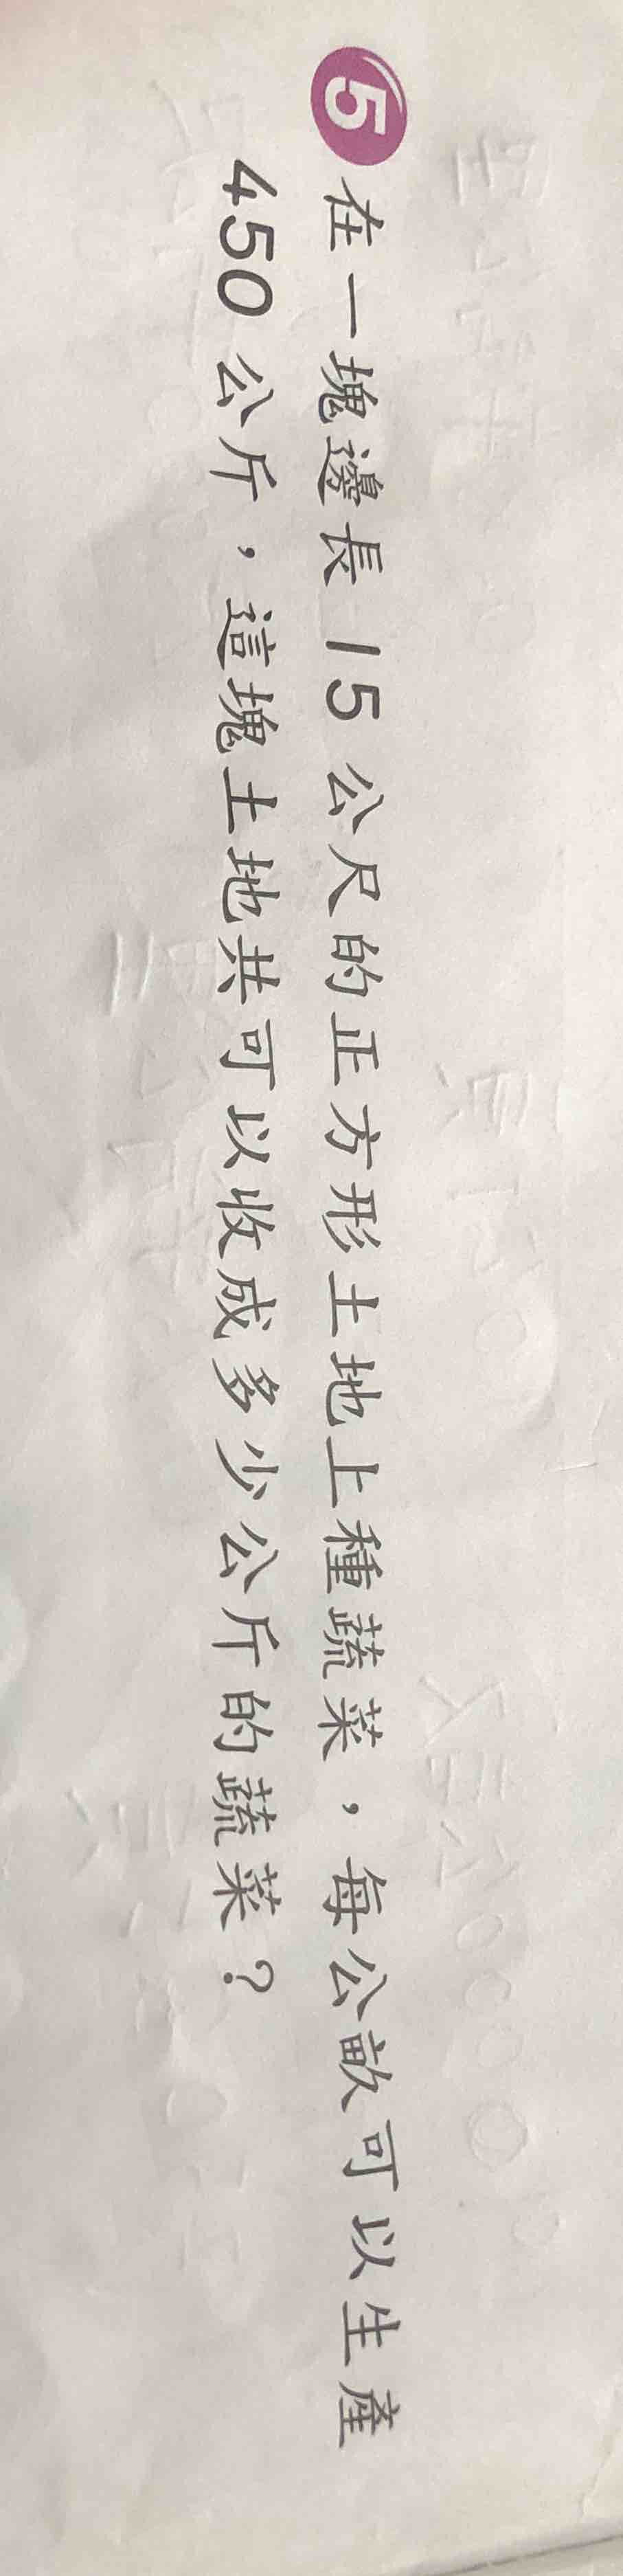 5 在一塊邊長 15 公尺的正方形土地上種蔬菜，每公畝可以生產
450 公斤，這塊土地共可以收成多少公斤的蔬菜？